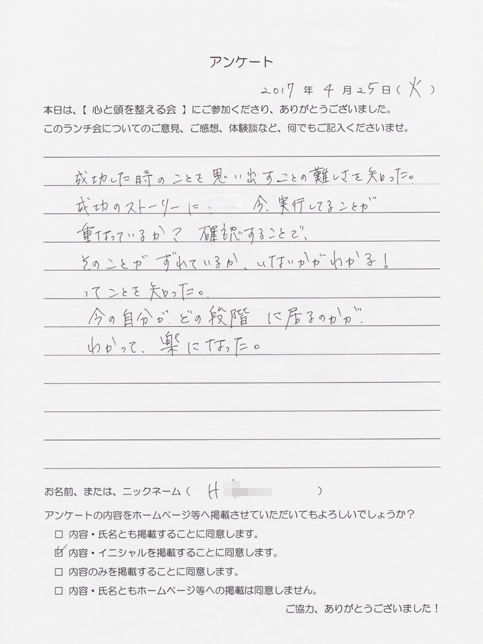 アンケート
2017 年 4 月 25 日 ( 火 )
本日は、【 心と頭を整える会 】にご参加くださり、ありがとうございました。
このランチ会についてのご意見、ご感想、体験談など、何でもご記入くださいませ。
成功した時のことを思い出すことの難しさを知った。
成功のストーリーに 今、実行してることが
重なっているか？ 確認することで、
そのことがずれているか、いないかがわかる！
ってことを知った。
今の自分がどの段階に居るのかが、
わかって、楽になった。
お名前、または、ニックネーム ( H )
アンケートの内容をホームページ等へ掲載させていただいてもよろしいでしょうか？
□ 内容・氏名とも掲載することに同意します。
☑ 内容・イニシャルを掲載することに同意します。
□ 内容のみを掲載することに同意します。
□ 内容・氏名ともホームページ等への掲載は同意しません。
ご協力、ありがとうございました！